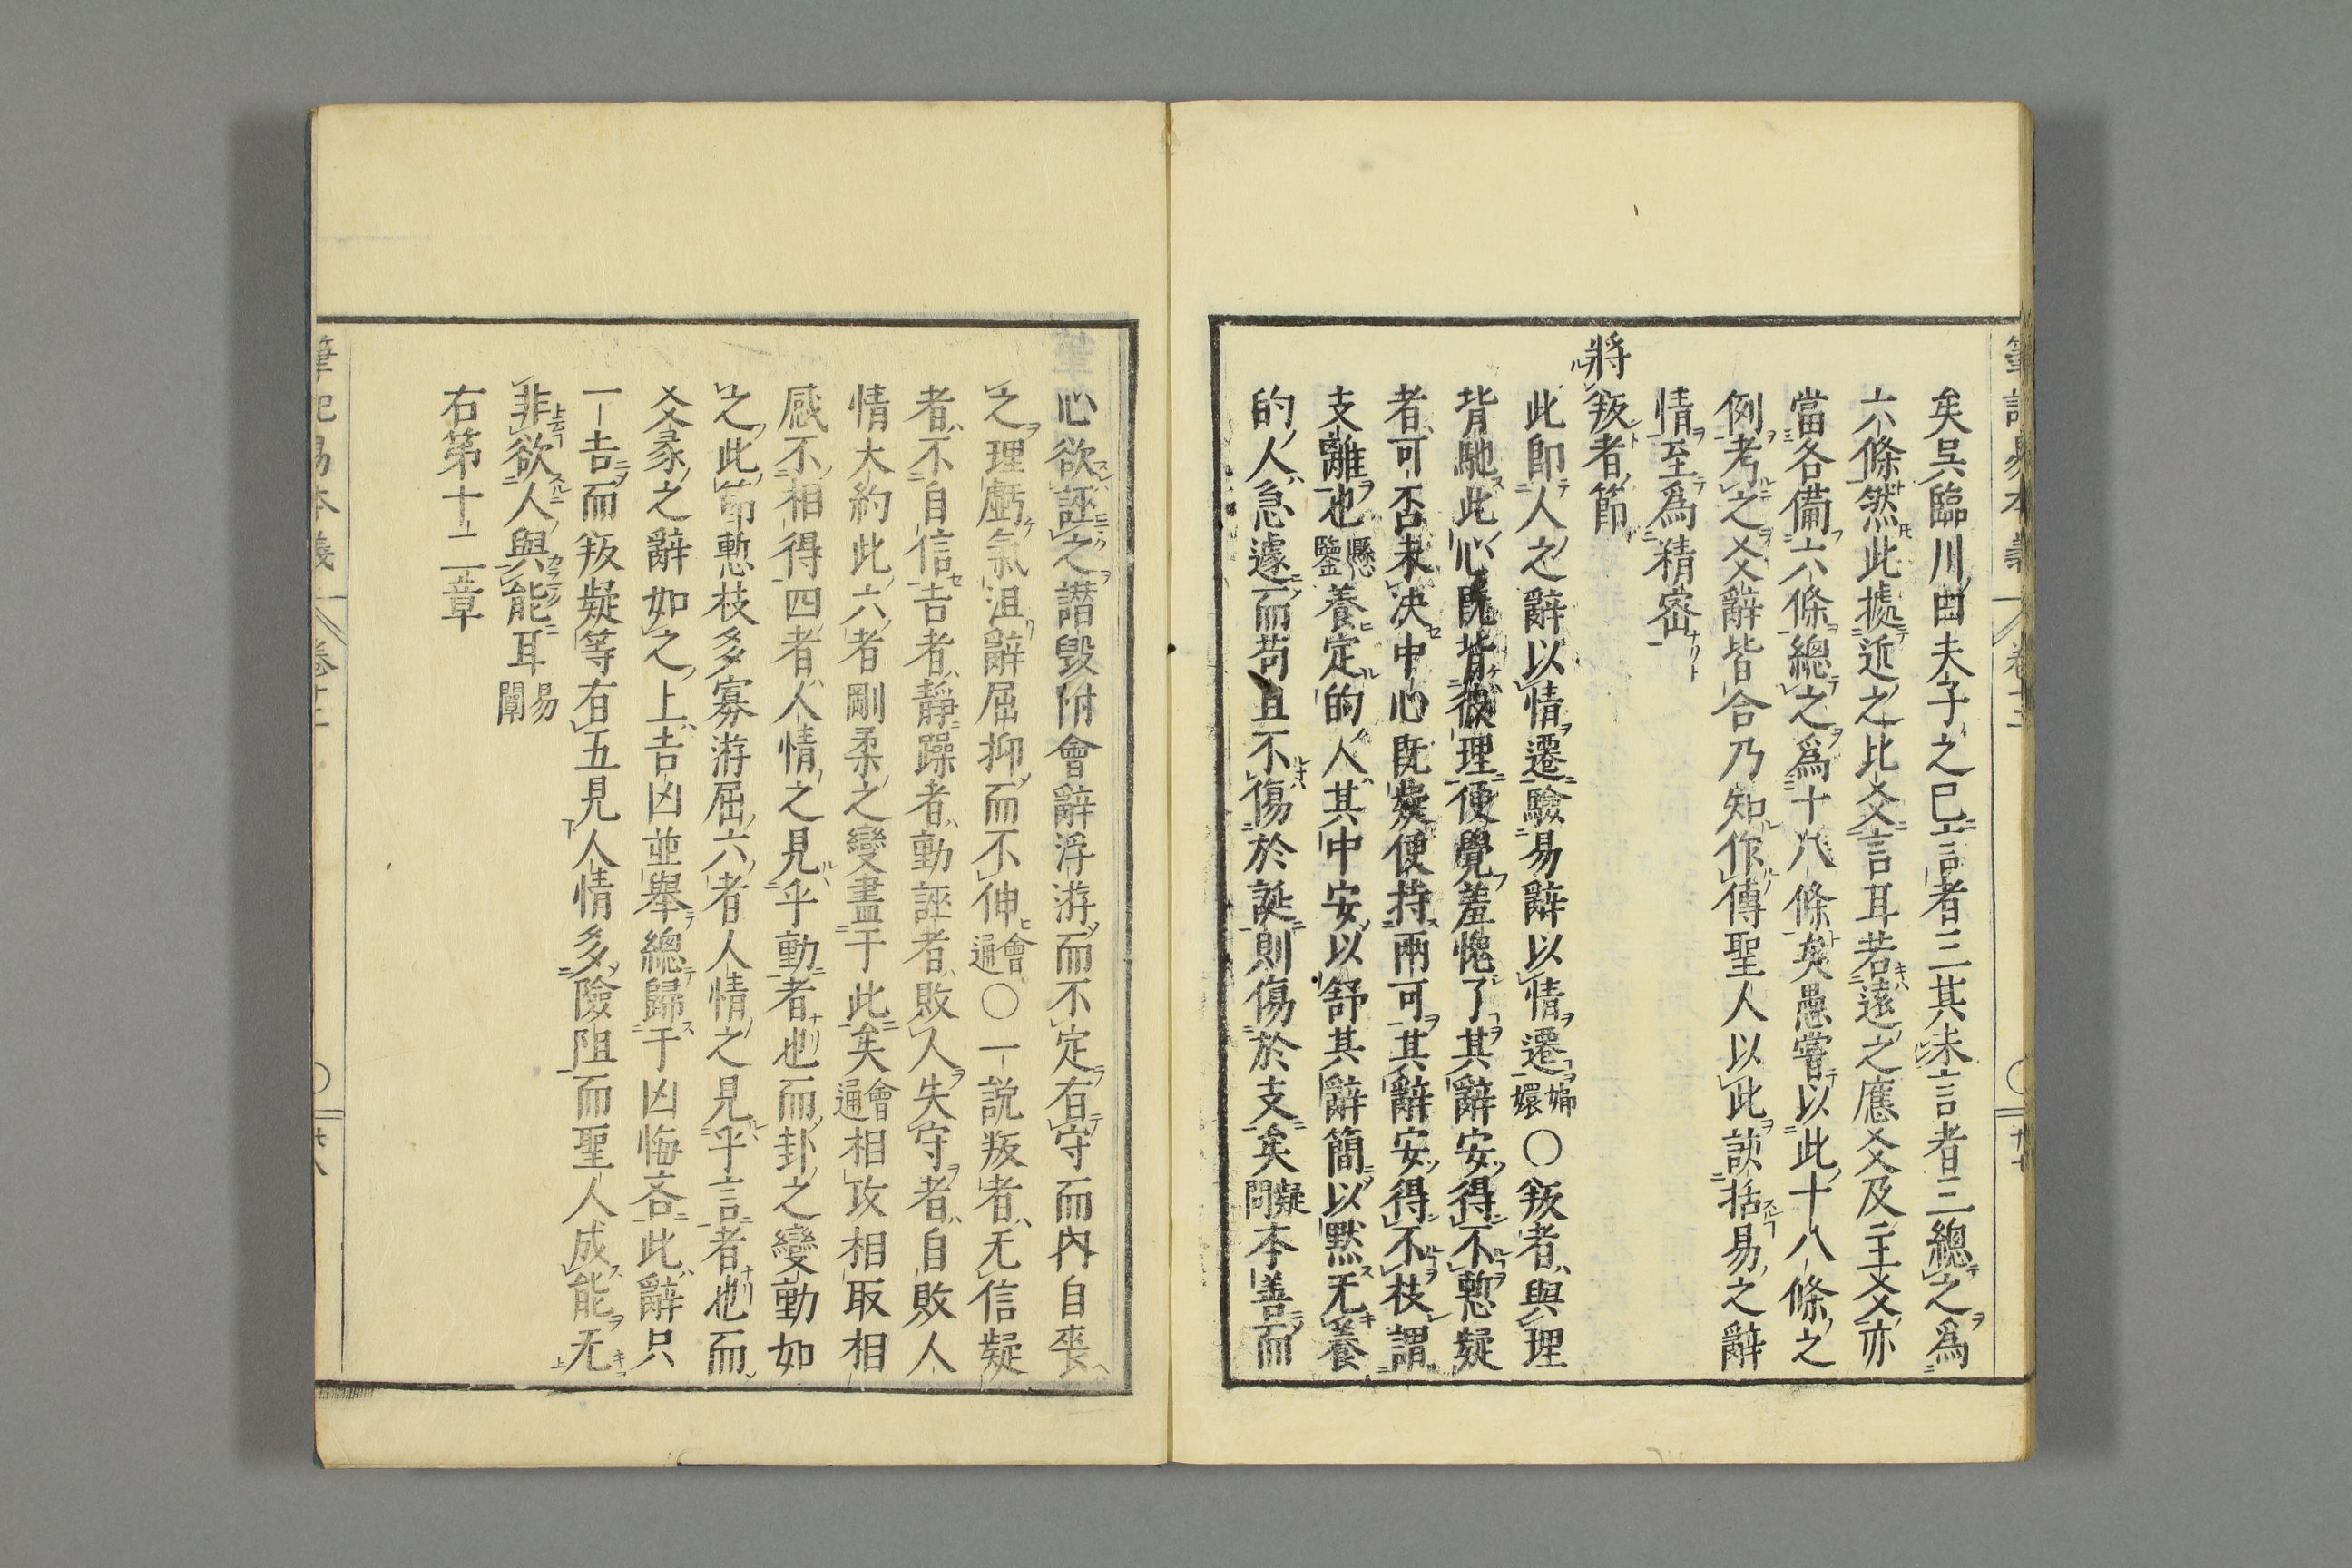 筆記易本義 卷十三 廿七
矣呉臨川因夫子之已言者三其未言者三總之爲
六條然此據近之比爻言耳若遠之應爻及主爻亦
當各備六條總之爲十八條矣愚嘗以此十八條之
例考之爻辭皆合乃知作傳聖人以此該括易之辭
情至爲精密
將叛者節
此即人之辭以情遷驗易辭以情遷嫏嬛〇叛者與理
背馳此心既背彼理便覺羞愧了其辭安得不慙疑
者可否未決中心既疑便持兩可其辭安得不枝謂
支離也懸鑒養定的人其中安以舒其辭簡以默无養
的人急遽而苟且不傷於誕則傷於支矣疑問本善而
心欲誣之譖毀附會辭浮游而不定右守而內自喪
之理虧氣沮辭屈抑而不伸會通〇一說叛者无信疑
者不自信吉者靜躁者動誣者敗人失守者自敗人
情大約此六者剛柔之變盡于此矣會通相攻相取相
感不相得四者人情之見乎動者也而卦之變動如
之此節慙枝多寡游屈六者人情之見乎言者也而
爻彖之辭如之上吉凶並舉總歸于凶悔吝此辭只
一吉而叛疑等有五見人情多險阻而聖人成能无
非欲人與能耳易闡
右第十二章
筆記易本義 卷十三 廿八